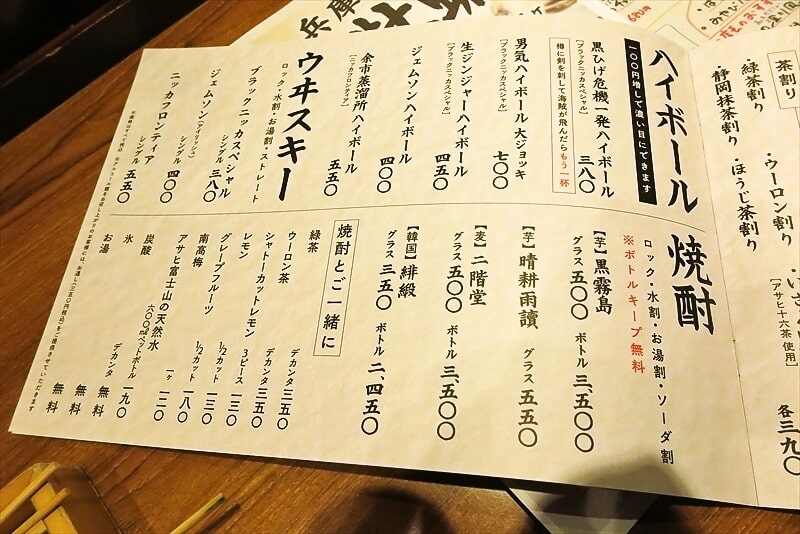 兵庫
茶割り
・緑茶割り
・静岡抹茶割り
・ウーロン割り
・ほうじ茶割り
[アサヒ十六茶使用]
各三九〇
ハイボール
一〇〇円増しで濃い目にできます
黒ひげ危機一発ハイボール
[ブラックニッカスペシャル]
三八〇
樽に剣を刺して海賊が飛んだらもう一杯
男気ハイボール 大ジョッキ
[ブラックニッカスペシャル]
七〇〇
生ジンジャーハイボール
[ブラックニッカスペシャル]
四五〇
ジェムソンハイボール
四〇〇
余市蒸溜所ハイボール
[ニッカフロンティア]
五五〇
ウヰスキー
ロック・水割・お湯割・ストレート
ブラックニッカスペシャル
シングル 三八〇
ジェムソン(アイリッシュ)
シングル 四〇〇
ニッカフロンティア
シングル 五五〇
焼酎
ロック・水割・お湯割・ソーダ割
※ボトルキープ無料
【芋】黒霧島
グラス 五〇〇 ボトル 三、五〇〇
【芋】晴耕雨讀 グラス 五五〇
【麦】二階堂
グラス 五〇〇 ボトル 三、五〇〇
【韓国】緋緞
グラス 三五〇 ボトル 二、四五〇
焼酎とご一緒に
緑茶 デカンタ 三五〇
ウーロン茶 デカンタ 三五〇
シャトーカットレモン 3ピース 一三〇
レモン 1/2カット 一三〇
グレープフルーツ 1/2カット 一八〇
南高梅 一ヶ 一二〇
アサヒ富士山の天然水
六〇〇mlペットボトル 一九〇
炭酸 デカンタ 無料
氷 無料
お湯 無料